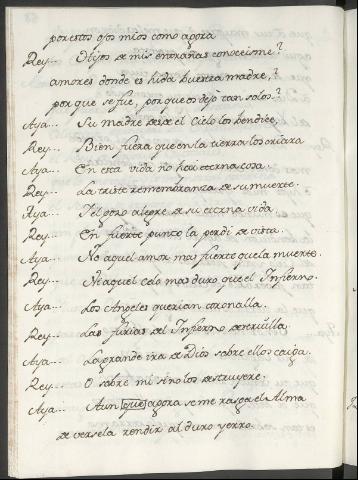 por estos ojos mios como agora
Rey... Hijos de mis entrañas conoceisme?
amores donde es hida buestra madre,?
por que se fue, por que os dejó tan solos.?
Aya... Su madre desde el Cielo los bendice.
Rey... Bien fuera que en la tierra los criara
Aya... En esta vida no hai eterna cosa.
Rey... La triste rememb̃ranza de su muerte.
Aya... I el gozo alegre de su eterna vida.
Rey... En fuerte punto la perdi de vista.
Aya... No aquel amor mas fuerte que la muerte.
Rey... Ni aquel Celo mas duro que el Infierno.
Aya... Los Angeles querian coronalla.
Rey... Las furias del Infierno destruilla.
Aya... La grande ira de Dios sobre ellos caiga.
Rey... O sobre mi sino los destruyere.
Aya... Aun que agora se me rasga el Alma
de versela rendir al duro yerro.